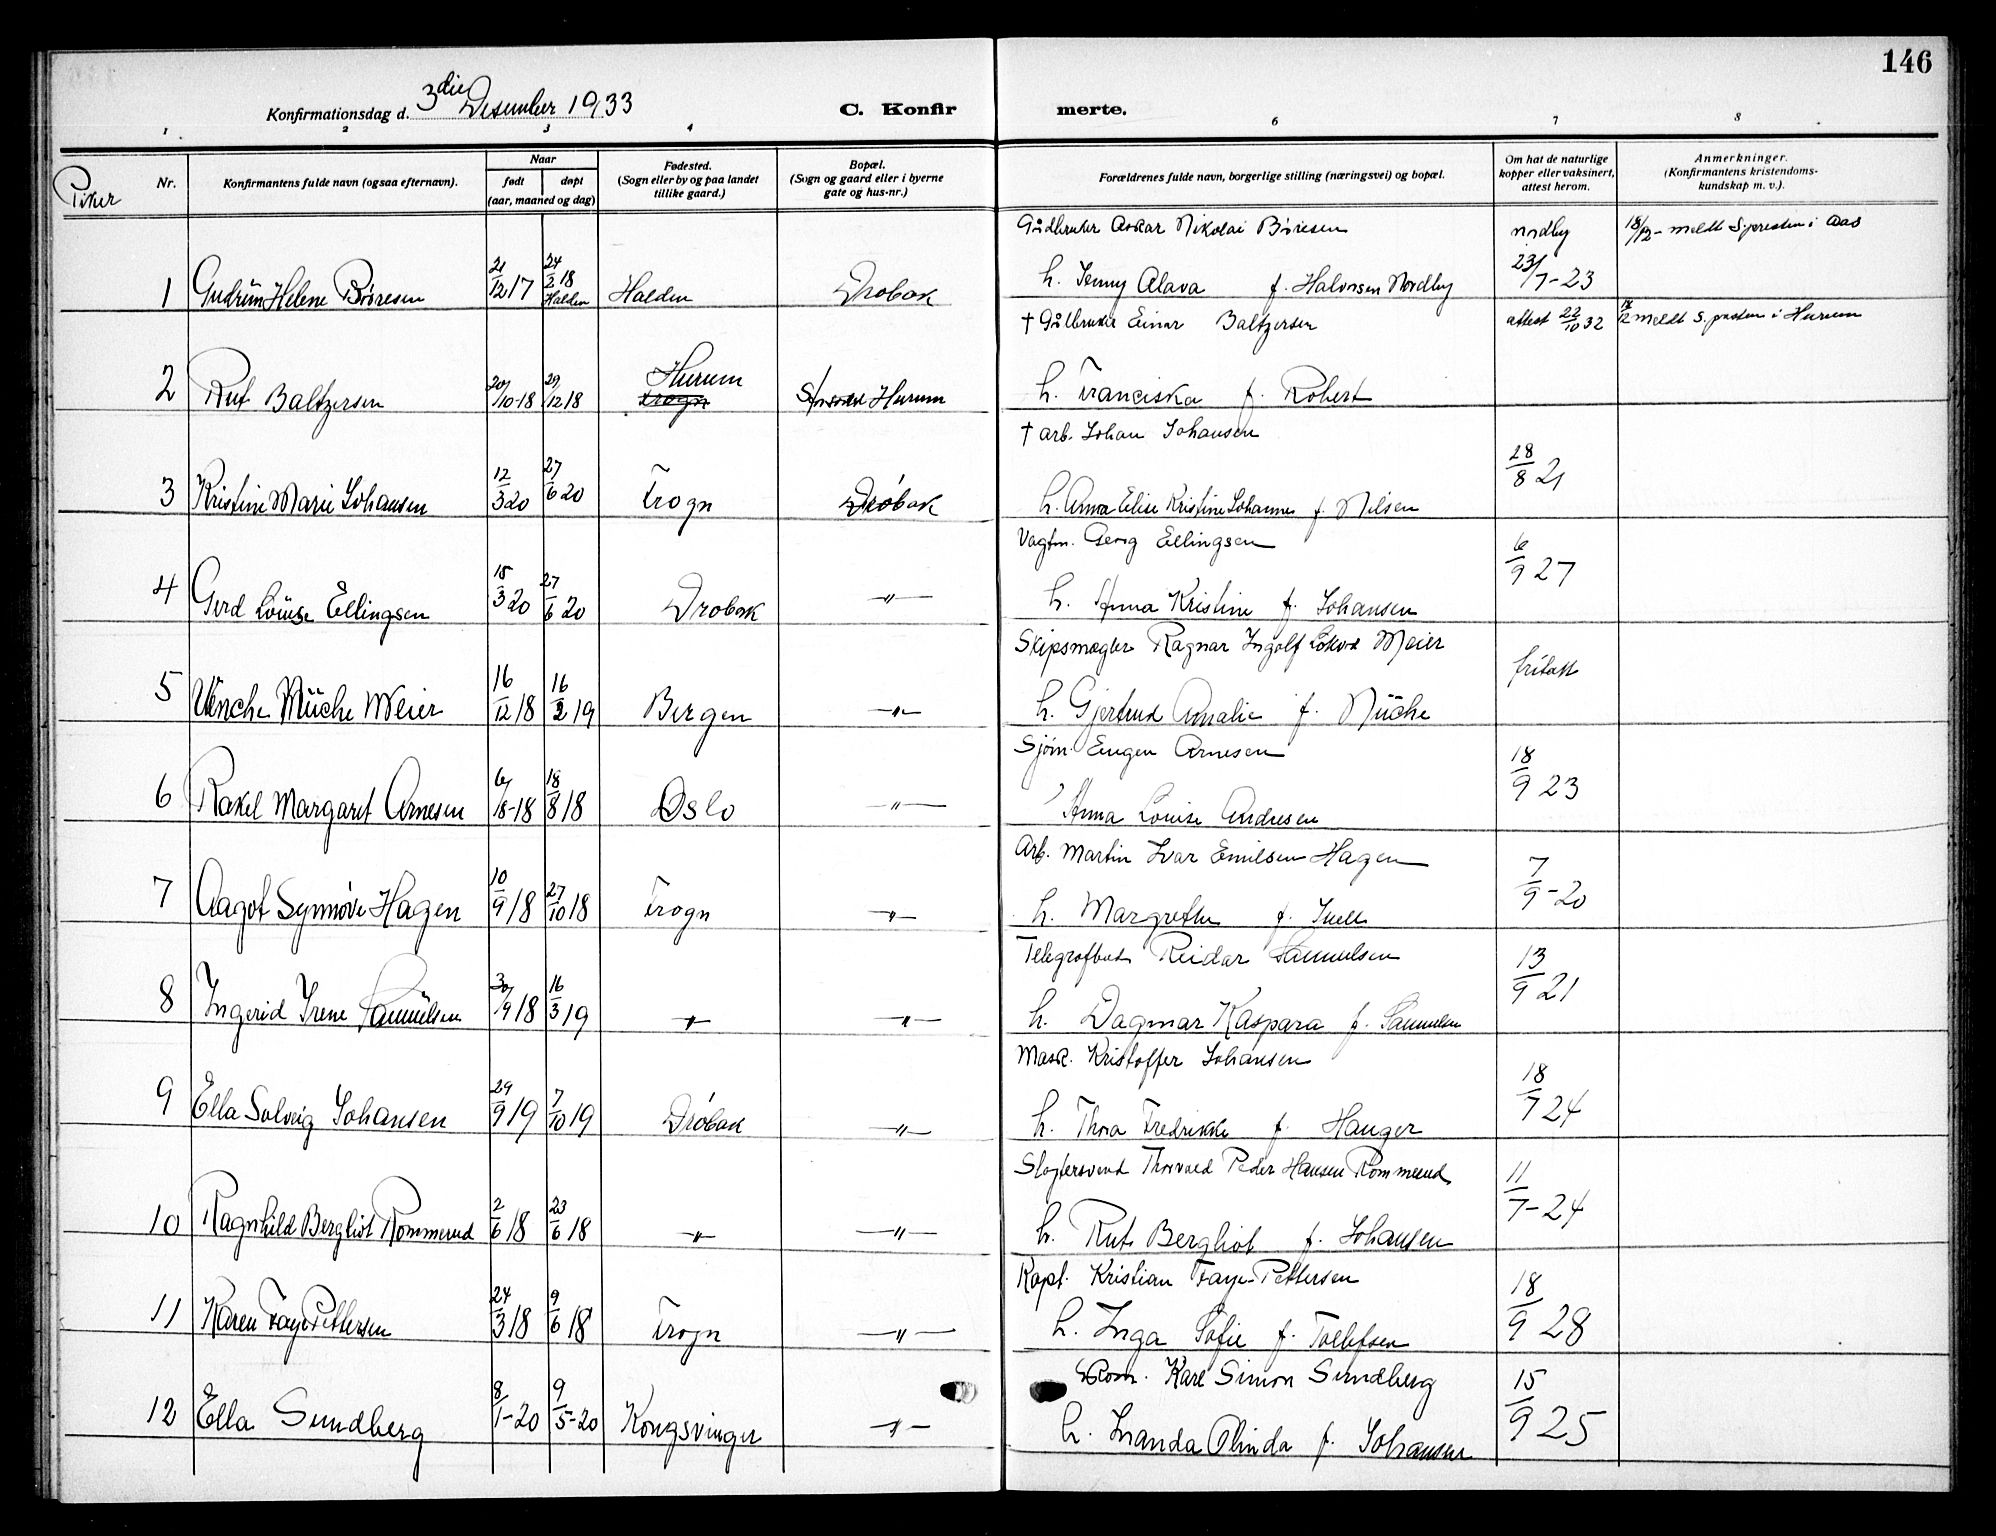 146
Konfirmationsdag d. 3die Desember 1933
C. Konfirmerte.
1 2 3 4 6 7 8
Piker
Nr.
Konfirmantens fulde navn (ogsaa efternavn).
Naar
født døpt
(aar, maaned og dag)
Fødested.
(Sogn eller by og paa landet
tillike gaard.)
Bopæl.
(Sogn og gaard eller i byerne
gate og hus-nr.)
Forældrenes fulde navn, borgerlige stilling (næringsvei) og bopæl.
Om hat de naturlige
kopper eller vaksinert,
attest herom.
Anmerkninger.
(Konfirmantens kristendoms-
kundskap m. v.).
Gårdbruker Oskar Nikolai Børesen nordby 18/12 - meldt S.presten i Aas
1 Gudrün Helene Børesen 21/12 17 24/2 18 Halden Halden Drøbak h. Jenny Alava f. Halvorsen Nordby 23/7-23
† Gålbruker Einar Baltzersen attest 22/10 32 18/12 meldt S.presten i Hurum
2 Rut Baltzersen 20/10-18 29/12 18 Hurum Frogn Hurum h. Franciska f. Robert
† arb. Johan Johansen
3 Kristine Marie Johansen 12/3 20 27/6 20 Frogn Drøbak h. Anna Elise Kristine Johanne f. Nilsen 28/8 21
Vagtm. Georg Ellingsen
4 Gerd Loüise Ellingsen 15/3 20 27/6 20 Drøbak -"- h. Anna Kristine f. Johansen 6/9 27
Skipsmægler Ragnar Ingolf Meier
5 Wenche Müche Meier 16/12 18 16/2 19 Bergen -"- h. Gjertrud Amalie f. Müche fritatt
Sjøm. Eugen Arnesen
6 Rakel Margaret Arnesen 6/8-18 18/8 18 Oslo -"- Anna Louise Andresen 18/9 23
Arb. Martin Ivar Emilsen Hagen
7 Aagot Synnøve Hagen 10/9 18 27/10 18 Frogn -"- h. Margrethe f. Juell 7/9-20
Telegrafbud Reidar Samuelsen
8 Ingerid Irene Samüelsen 30/9 18 16/3 19 -"- -"- h. Dagmar Kaspara f. Samuelsen 13/9 21
Mask. Kristoffer Johansen
9 Ella Solveig Johansen 29/9 19 7/10 19 Drøbak -"- h. Thora Fredrikke f. Hauger 18/7 24
Slagtersvend Thorvald Peder Hansen Rommerud
10 Ragnhild Bergliot Rommerud 2/6 18 23/6 18 -"- -"- h. Rut Bergliot f. Johansen 11/7-24
Kapt. Kristian Faye-Pettersen
11 Karen Faye Pettersen 24/3 18 9/6 18 Frogn -"- h. Inga Sofie f. Tollefsen 18/9 28
Rom. Karl Simon Sundberg
12 Ella Sundberg 8/1-20 9/5-20 Kongsvinger -"- h. Wanda Olinda f. Johansen 15/9 25